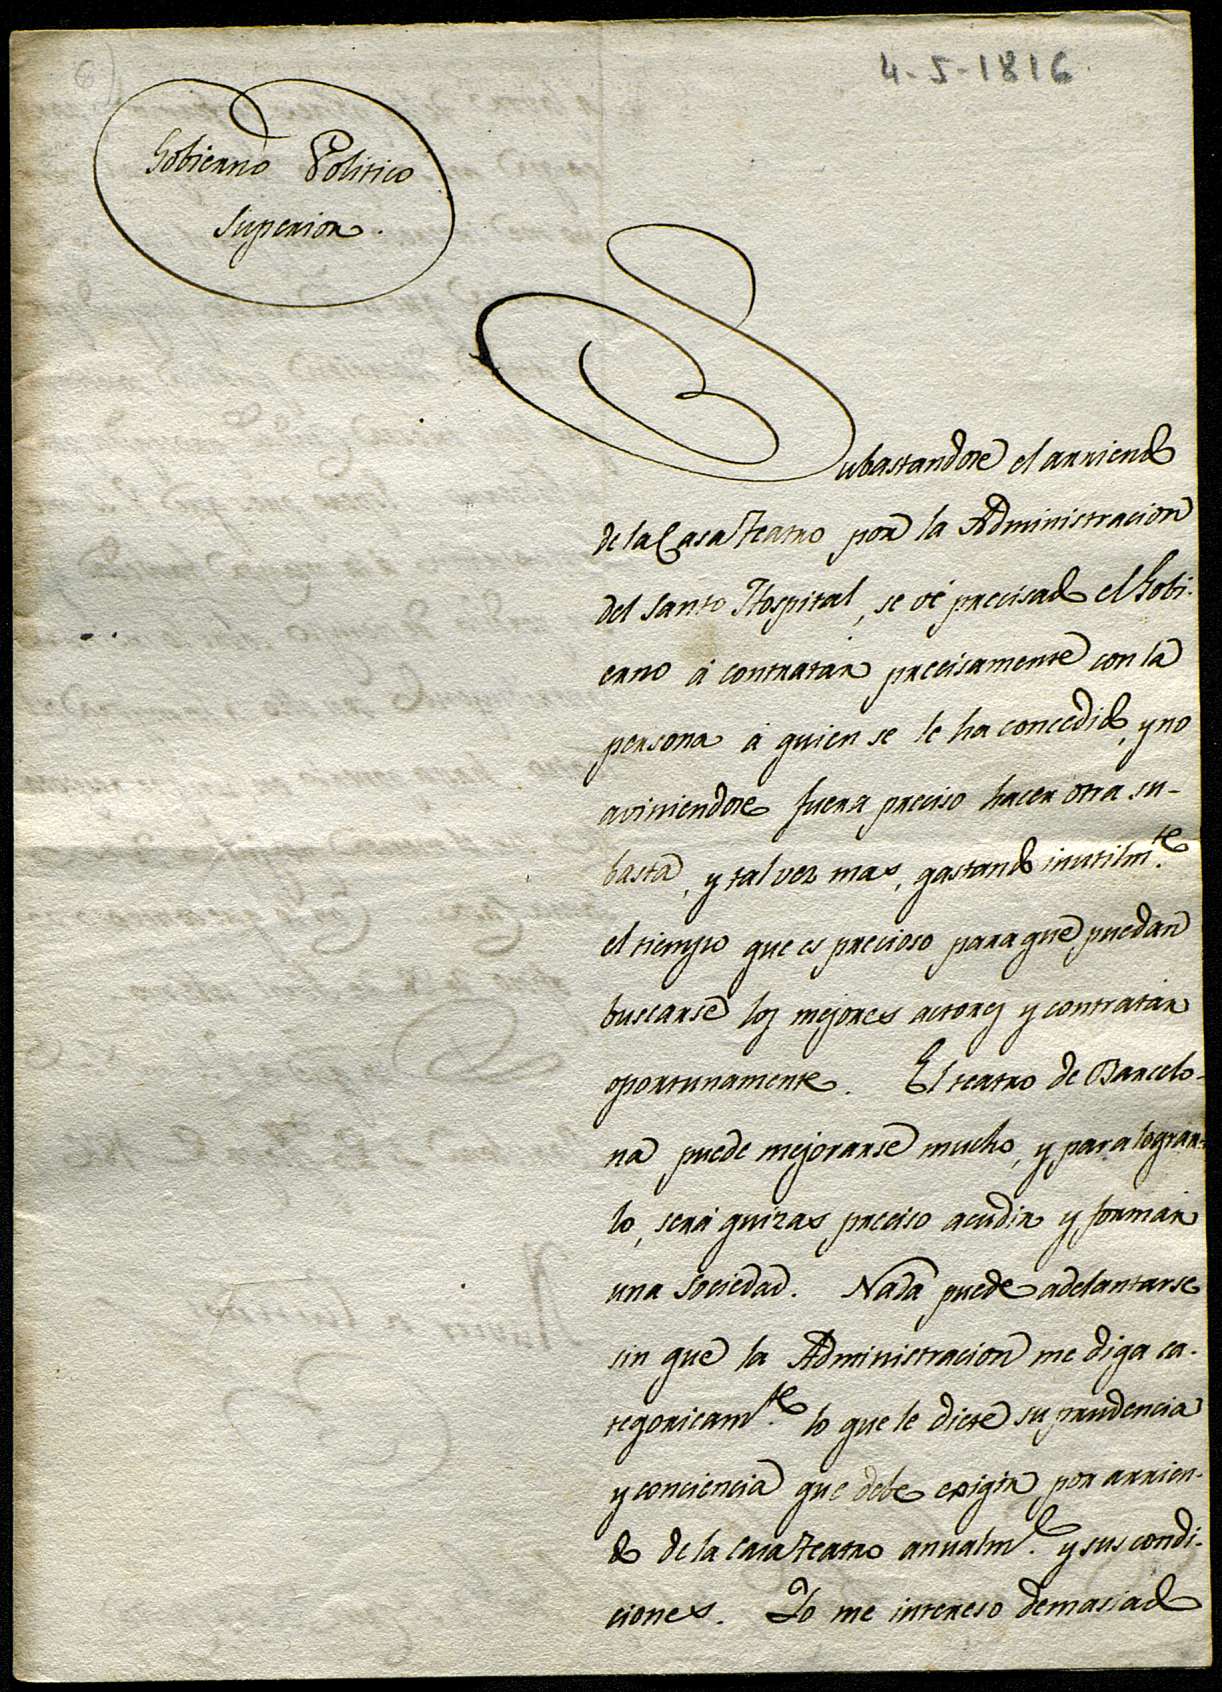 4-5-1816
Gobierno Politico
Superior.
Subastandose el arriendo
de la Casa Teatro por la Administracion
del Santo Hospital, se vé precisado el Gobi-
erno á contratar precisamente con la
persona á quien se le ha concedido, y no
aviniendose fuera preciso hacer otra su-
basta, y tal vez mas, gastando inutilmte.
el tiempo que es precioso para que puedan
buscarse los mejores actores y contratar
oportunamente. El teatro de Barcelo-
na puede mejorarse mucho, y para lograr-
lo, será quizas preciso acudir y formar
una Sociedad. Nada puede adelantarse
sin que la Administracion me diga ca-
tegoricamte. lo que le dicte su prudencia
y conciencia que debe exigir por arrien-
do de la Casa Teatro anualmte. y sus condi-
ciones. Yo me intereso demasiado